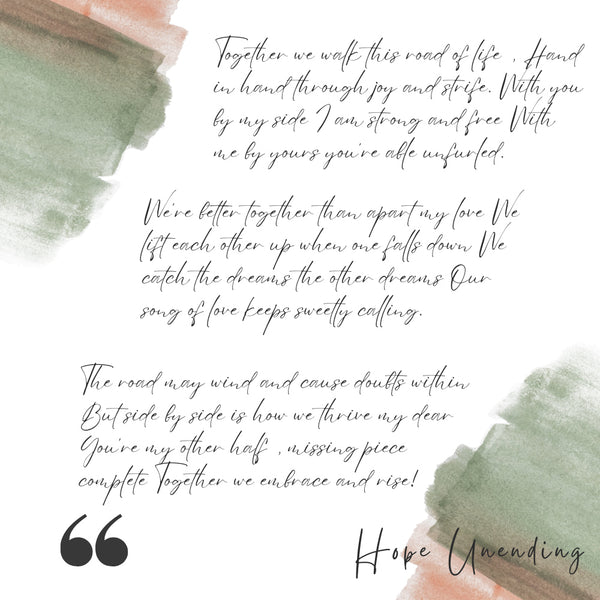 Together we walk this road of life , Hand
in hand through joy and strife. With you
by my side I am strong and free With
me by yours you're able unfurled.
We're better together than apart my love We
lift each other up when one falls down We
catch the dreams the other dreams Our
song of love keeps sweetly calling.
The road may wind and cause doubts within
But side by side is how we thrive my dear
You're my other half , missing piece
complete Together we embrace and rise!
“
Hope Unending